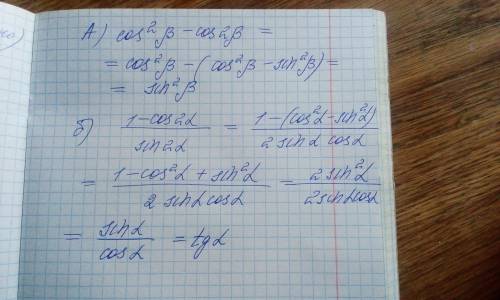 А) cos²β - cos2β =
= cos²β - (cos²β - sin²β) =
= sin²β
б) (1-cos2α)/(sin2α) = (1-(cos²α-sin²α))/(2 sinα cosα)
= (1-cos²α + sin²α)/(2 sinα cosα) = (2 sin²α)/(2 sinα cosα)
= (sinα)/(cosα) = tgα